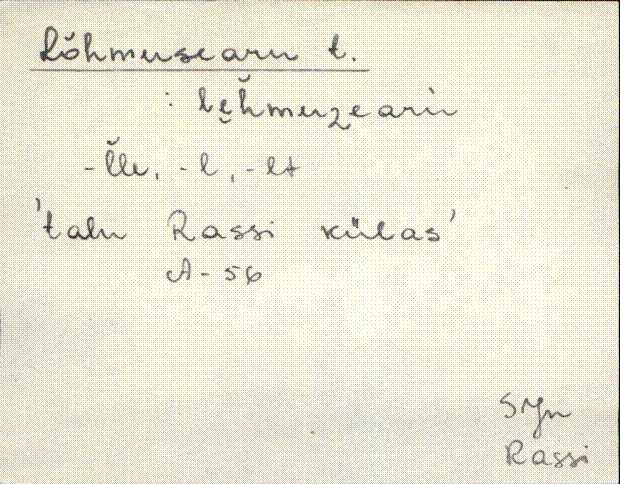 Lõhmusearu t.
: lẹh̆muzearu
- l̆le, - l, - lt
'talu Rassi külas'
A - 56
Syn
Rassi